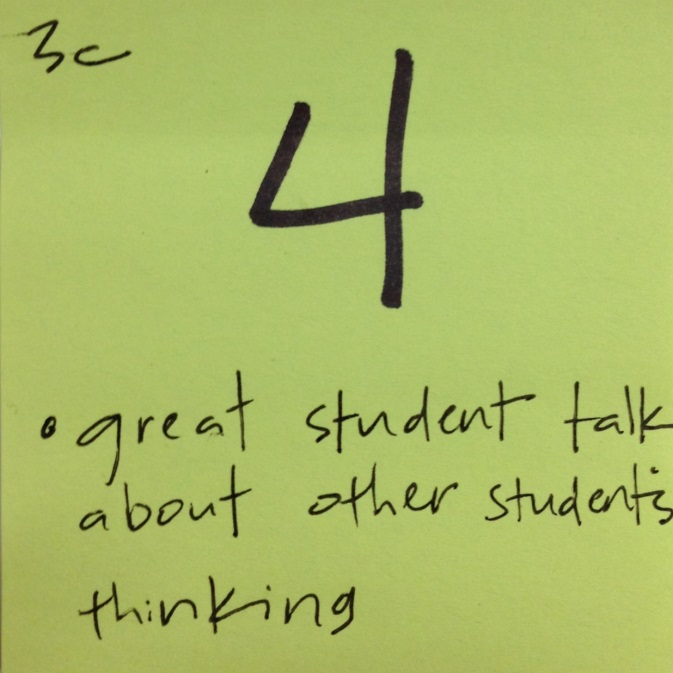 3c
4
• great student talk
about other student's
thinking